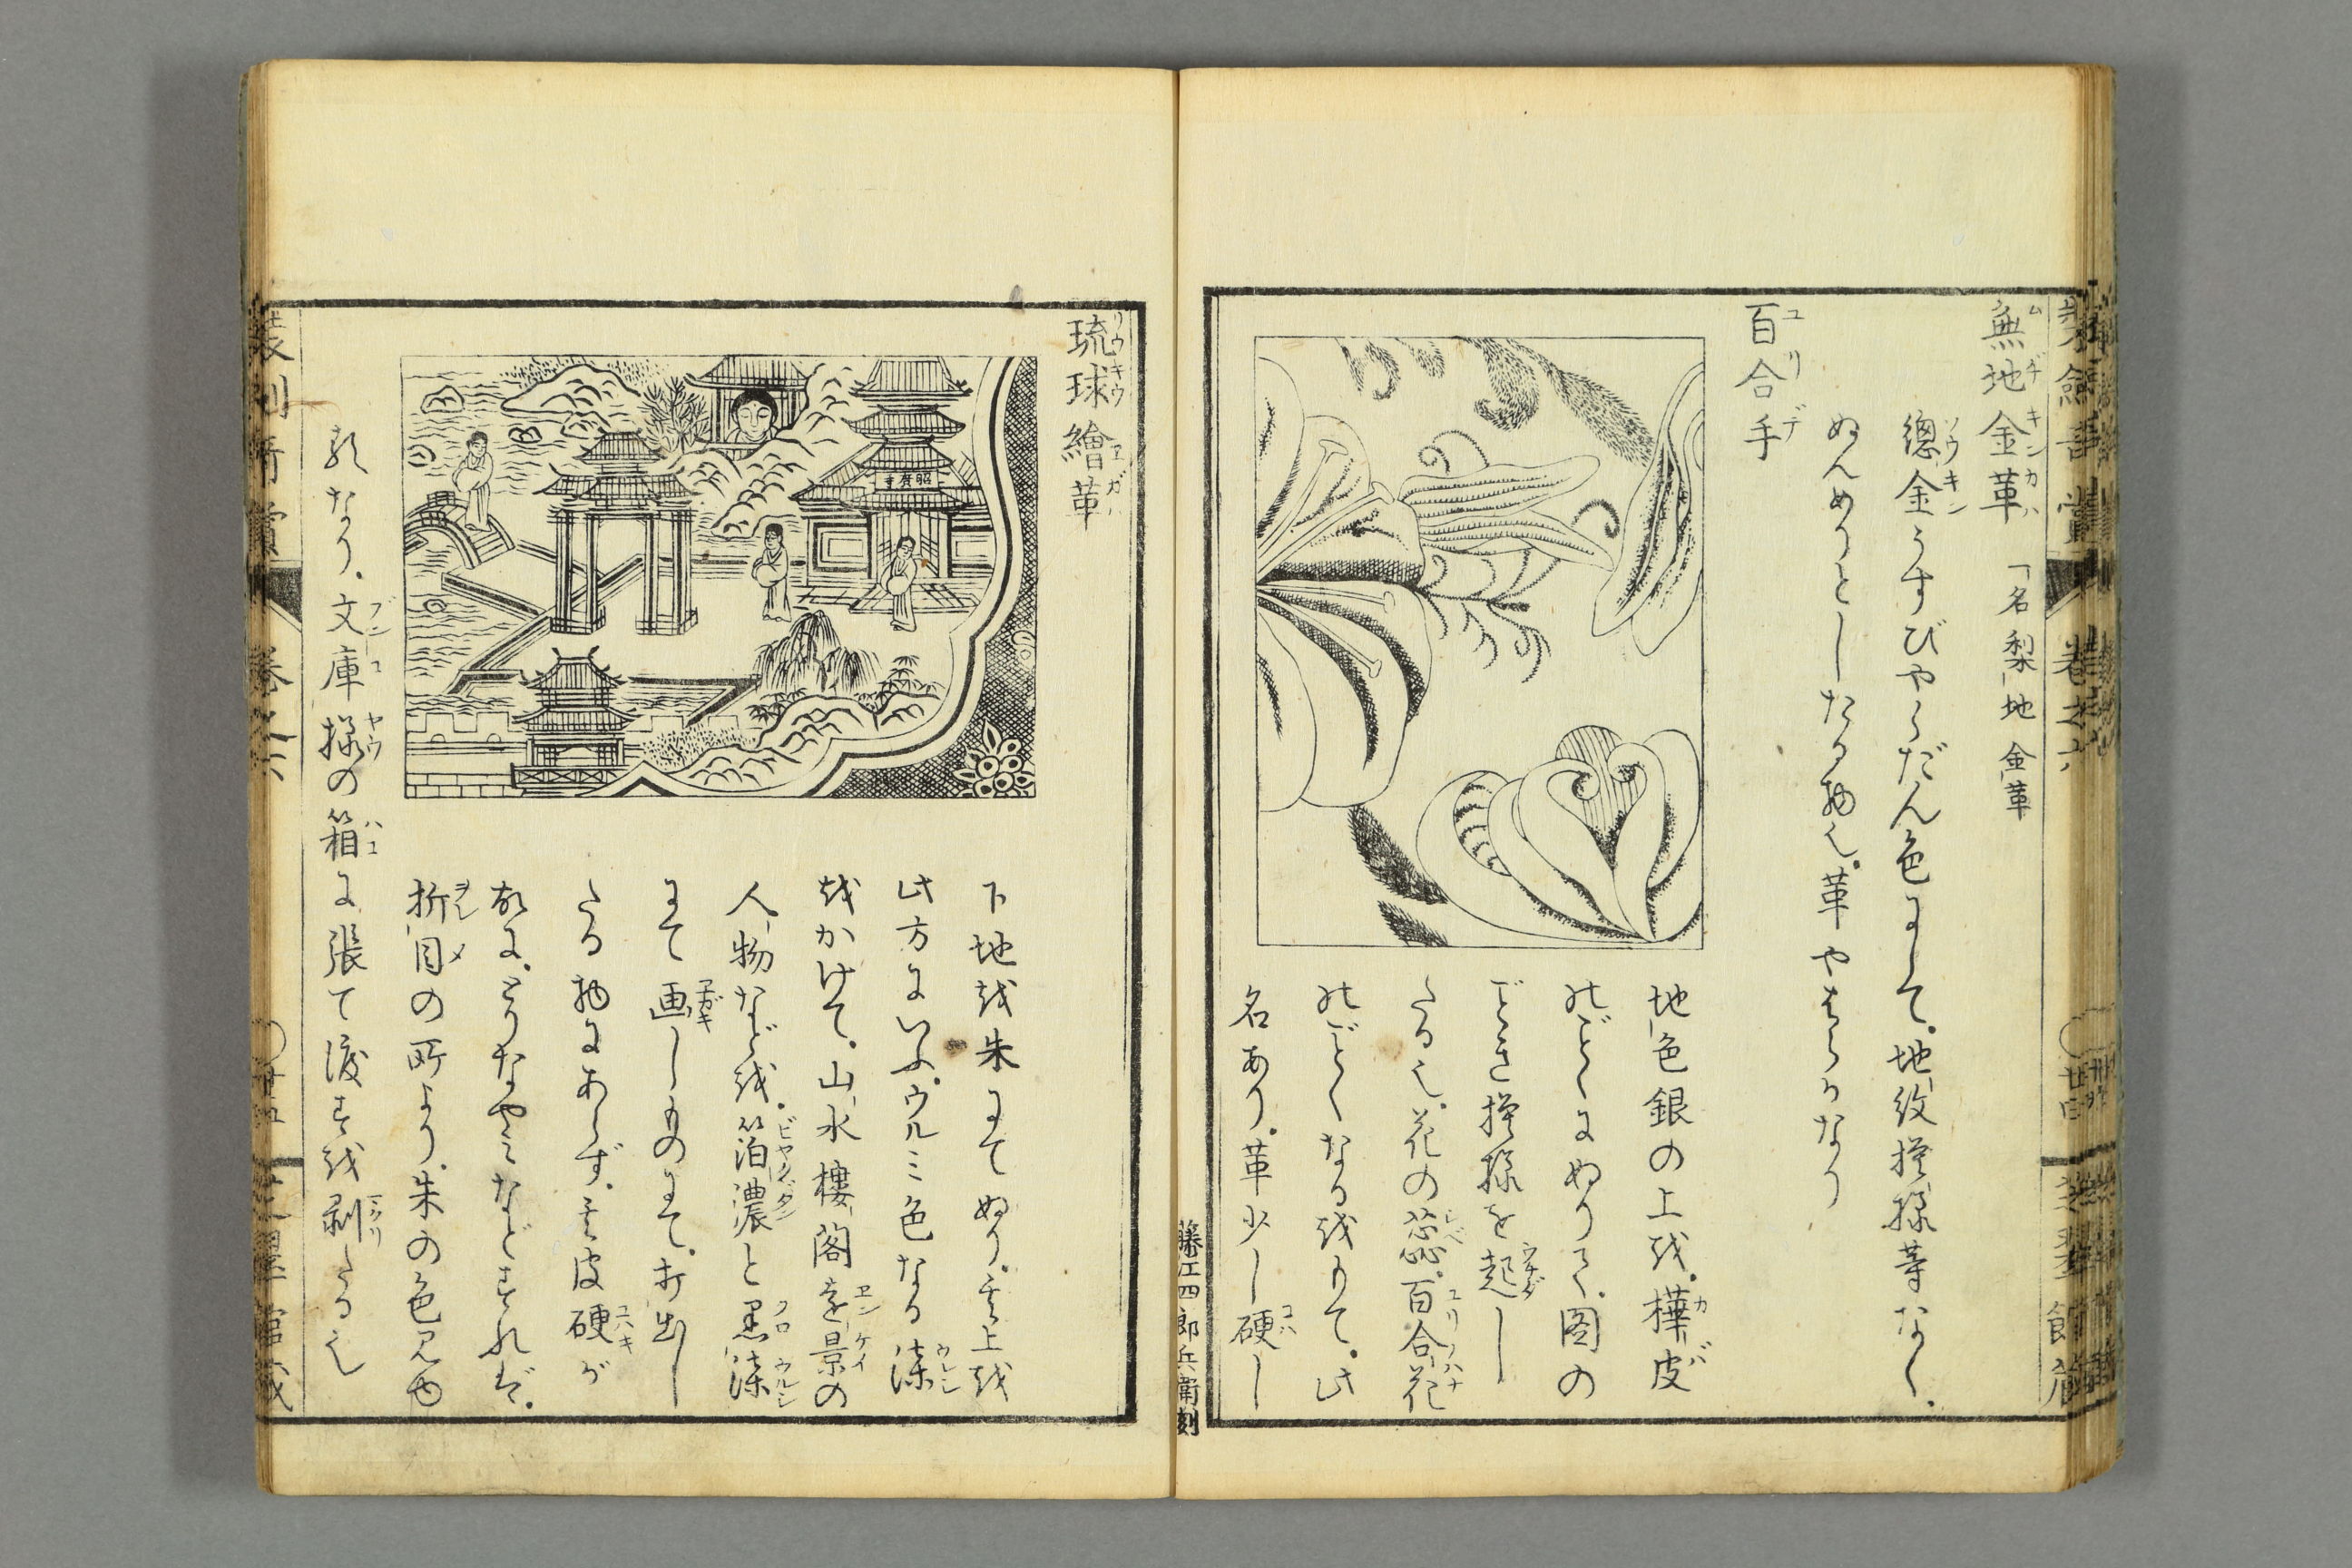 無地金革 一名梨地金革
總金うすびやくだん色にして。地紋摸様等なく。
ぬんめりとしたる物也。革やはらかなり
百合手
地色銀の上を。樺皮
のごとくにぬりて。図の
ごとき摸様を起し
たる也。花の蕊。百合花
のごとくなるをもて。此
名あり。革少し硬し
藤江四郎兵衛刻
琉球繪革
下地を朱にてぬり。其上を
此方にいふ。ウルミ色なる漆
をかけて。山水樓閣遠景の
人物などを。箔濃と黒漆
にて画しものにて。打出し
たる物にあらず。其皮硬が
故に。とりなやみなどすれば。
折目の所より。朱の色見ゆ
るなり。文庫様の箱に張て渡すを剥たる也
昭慶寺